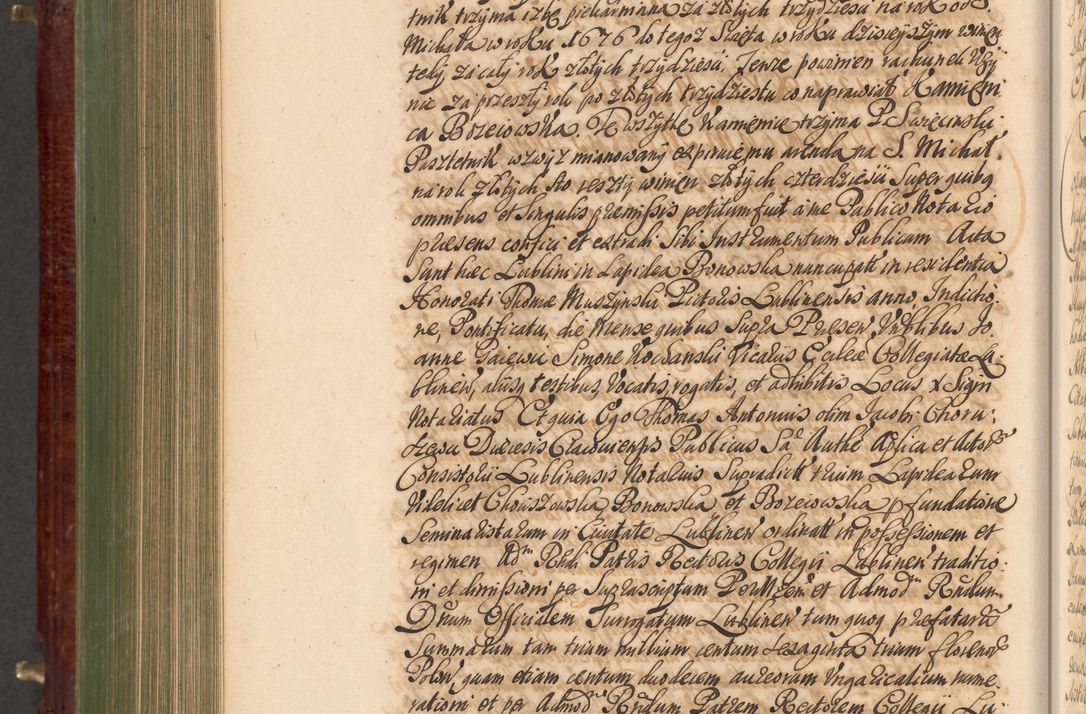 tnik trzyma izbę piekarnianą za złotych trzydziesci na rok od S.
Michała w roku 1676 do tegoz Swięta w roku dzisieyszym winien
tedy za cały rok złotych trzydziesci. Tenze powinien rachunek Uczy
nic za przeszły rok po złotych trzydziestu co naprawiał Kamieni
ca Bozeiowska. Te wszytkę Kamienicę trzyma P. Swięcinski
Pasztetnik wzwyz mianowany expiruie mu arenda na S. Michał
na rok złotych sto reszty winien złotych czterdziesci Super quibq
omnibus et singulis præmissis petitum fuit a me Publico Nota rio
præsens confici et extradi Sibi Instrumentum Publicum Acta
Sunt hæc Lublini in Lapidea Bonowska nuncupatt in residentia
Honorati Thomæ Muszynski Pictoris Lublinensis anno, Indictio
ne, Pontificatu, die Mense quibus Supra Præsen Jo
anne Gaiewic Simone Kochanskii Vicariis Ecclæ Collegiatæ Lu
blinen, aliisq testibus, Vocatis, rogatis, et adhibitis Locus x Signi
Notariatus Et quia Ego Thomas Antonius olim Jacobi Choru
Diæcesis Cracouiensis Publicus Sa Autho Aplica et Actor
Consistorii Lublinensis Notarius Supradictt trium Lapidearum
Videlicet Bonowska et Bozeiowska p fundatione
Seminaristarum in Ciuitate Lublinen ordinatt in possessionem et
regimen Adm Rndi Patris Rectoris Collegii Lublinen traditio
ni et dimissioni per Suprascriptum et Admodm Rndum
Dnum Officialem Surrogatum Lublinen tam quoq præfataru
Summarum tam trium millium centum sexaginta trium florenor
Polon, quam etiam centum duodecem aureorum Ungaricalium nume
rationi et per Admodm Rndum Patrem Rectorem Collegii Lu